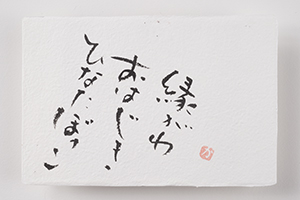 縁がわ
おはじき
ひなたぼっこ